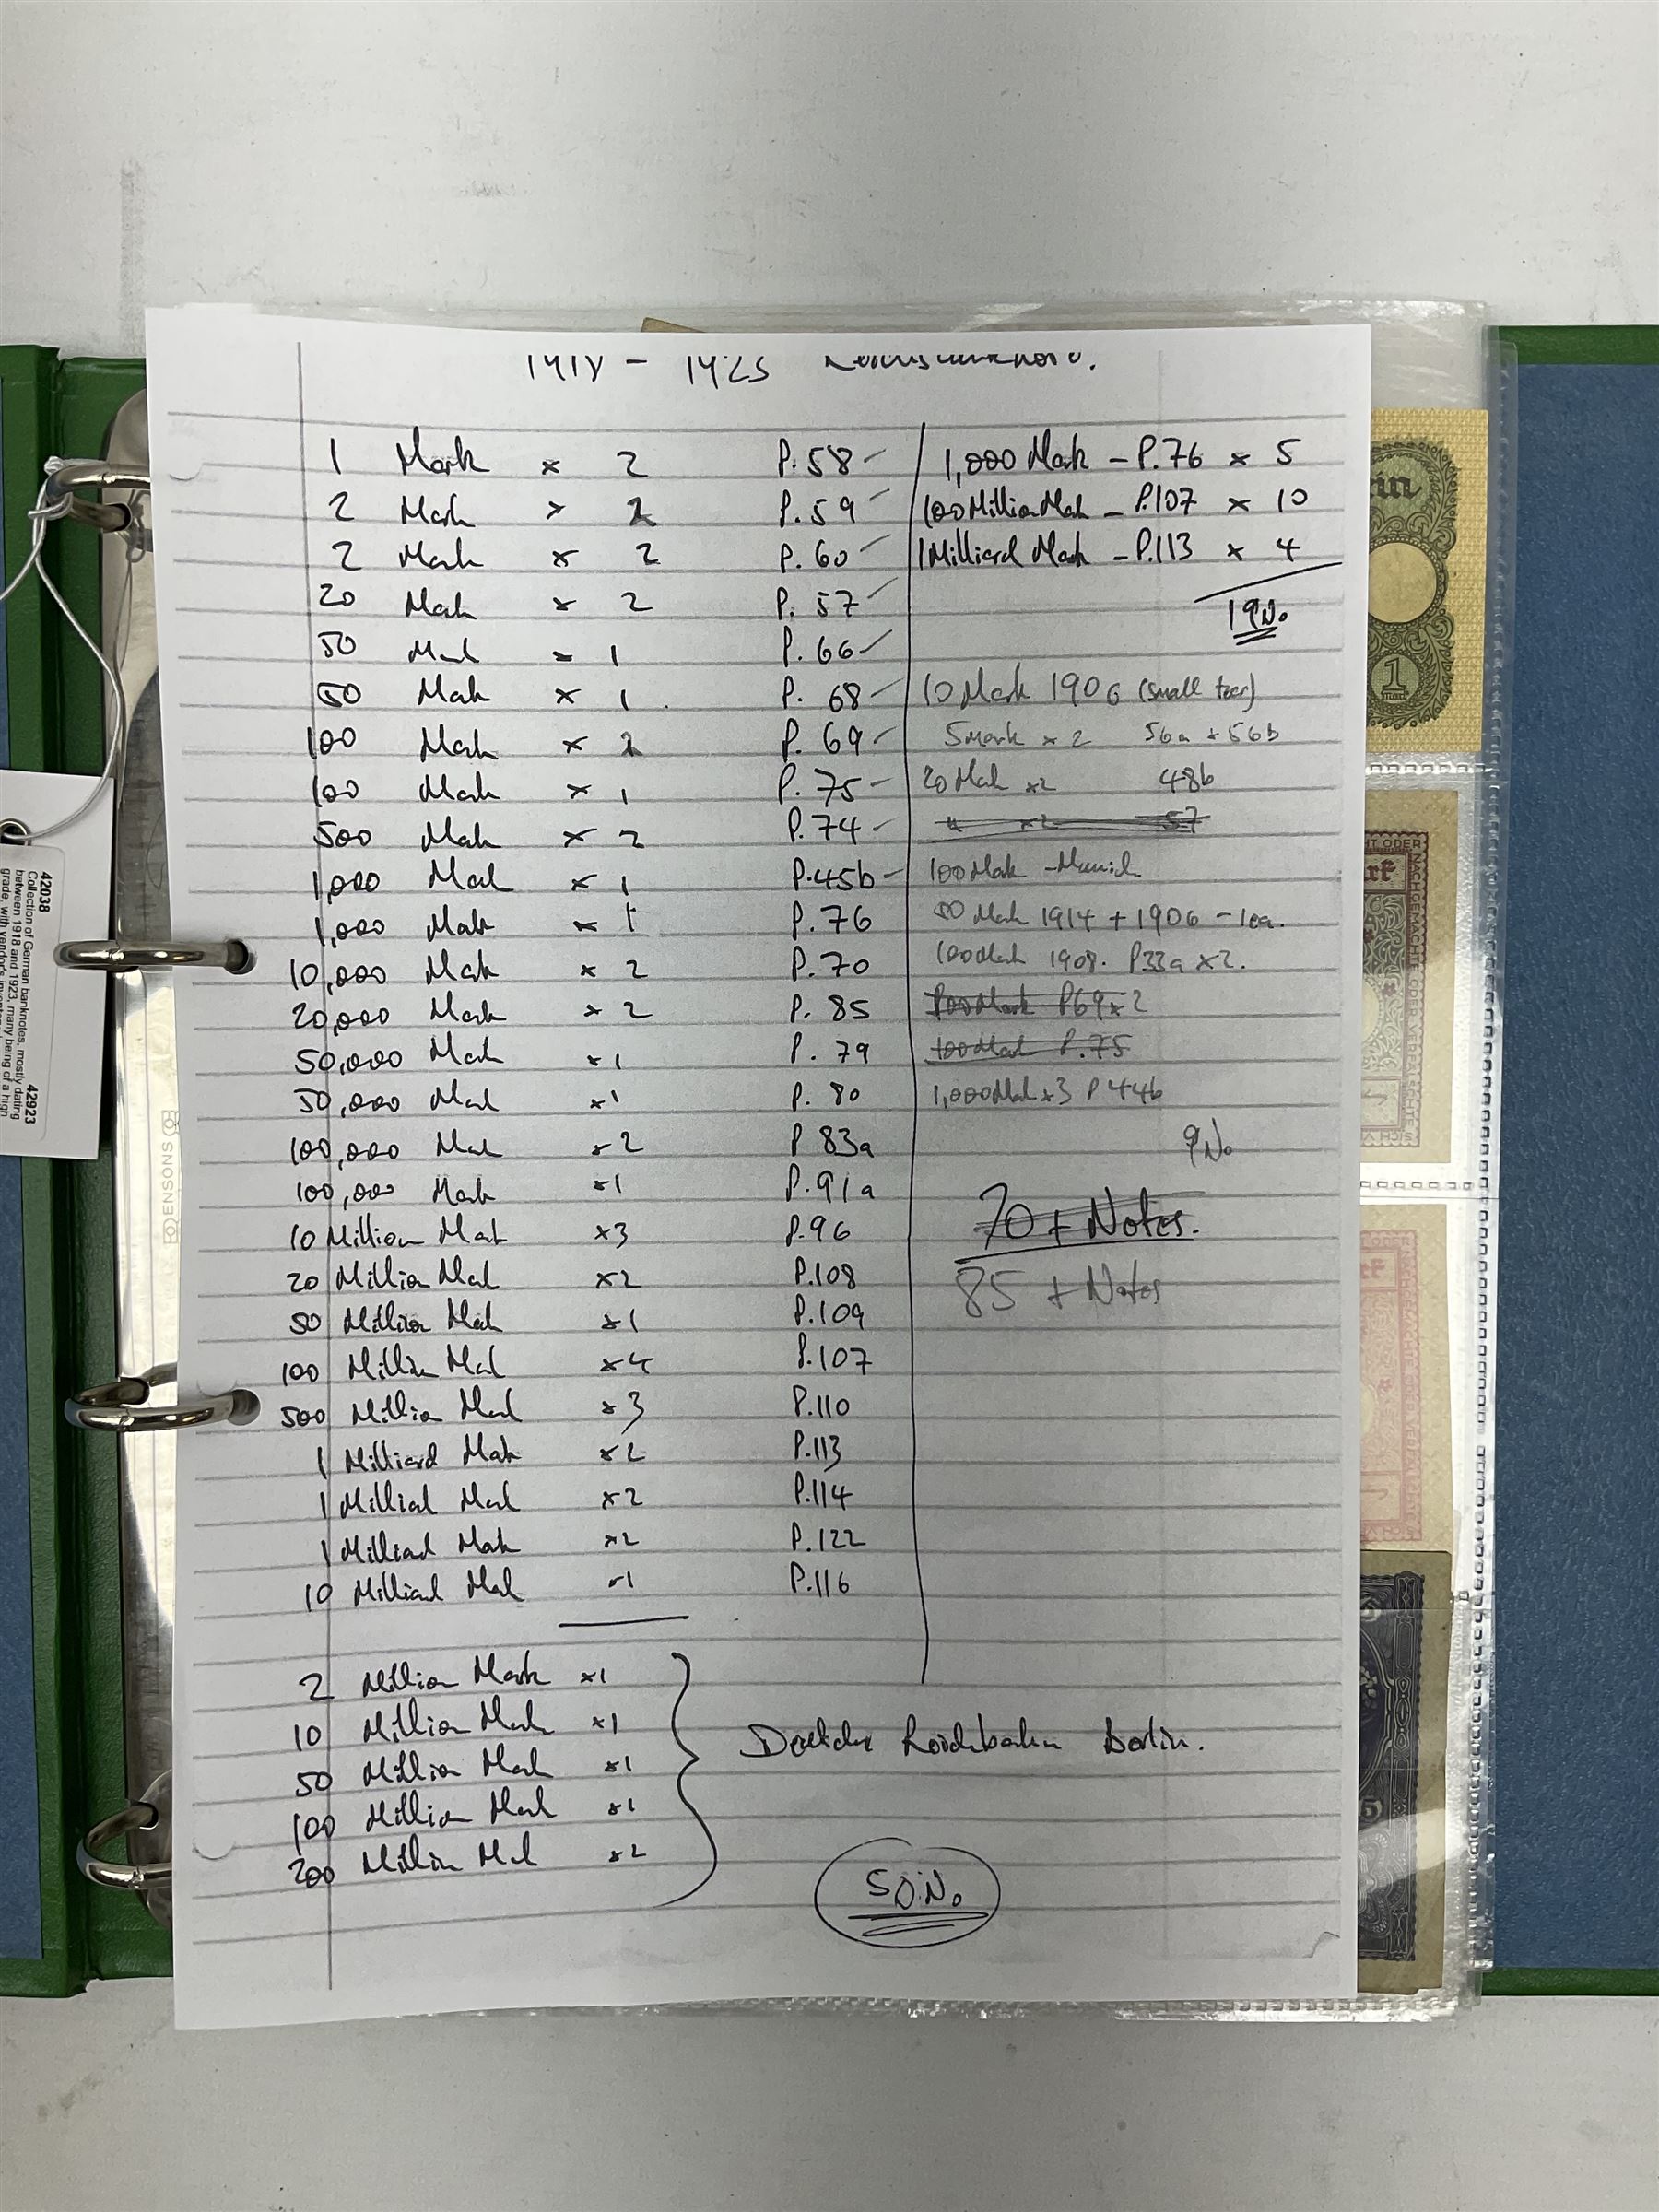 1918 - 1923
1 Mark × 2 P.58
2 Mark × 2 P.59
2 Mark × 2 P.60
20 Mark × 2 P.57
50 Mark × 1 P.66
50 Mark × 1 P.68
100 Mark × 2 P.69
100 Mark × 1 P.75
500 Mark × 2 P.74
1,000 Mark × 1 P.45b
1,000 Mark × 1 P.76
10,000 Mark × 2 P.70
20,000 Mark × 2 P.85
50,000 Mark × 1 P.79
50,000 Mark × 1 P.80
100,000 Mark × 2 P 83a
100,000 Mark × 1 P.91a
10 Million Mark × 3 P.96
20 Million Mark × 2 P.108
50 Million Mark × 1 P.109
100 Million Mark × 4 P.107
500 Million Mark × 3 P.110
1 Milliard Mark × 2 P.113
1 Milliard Mark × 2 P.114
1 Milliard Mark × 2 P.122
10 Milliard Mark × 1 P.116
2 Million Mark × 1
10 Million Mark × 1
50 Million Mark × 1
100 Million Mark × 1
200 Million Mark × 2
Berlin.
50 No.
1,000 Mark - P.76 × 5
100 Million Mark - P.107 × 10
1 Milliard Mark - P.113 × 4
19 No.
10 Mark 1906 (small tear)
5 Mark × 2 56a + 56b
20 Mark × 2 48b
" × 2 57
100 Mark - Munich
50 Mark 1914 + 1906 - 1ea.
100 Mark 1908. P33a × 2.
100 Mark P69 × 2
100 Mark P.75
1,000 Mark × 3 P 44b
9 No
70 + Notes.
85 + Notes
42038 42923
Collection of German banknotes, mostly dating
between 1918 and 1923, many being of a high
grade, with vendor's
ENSONS
1